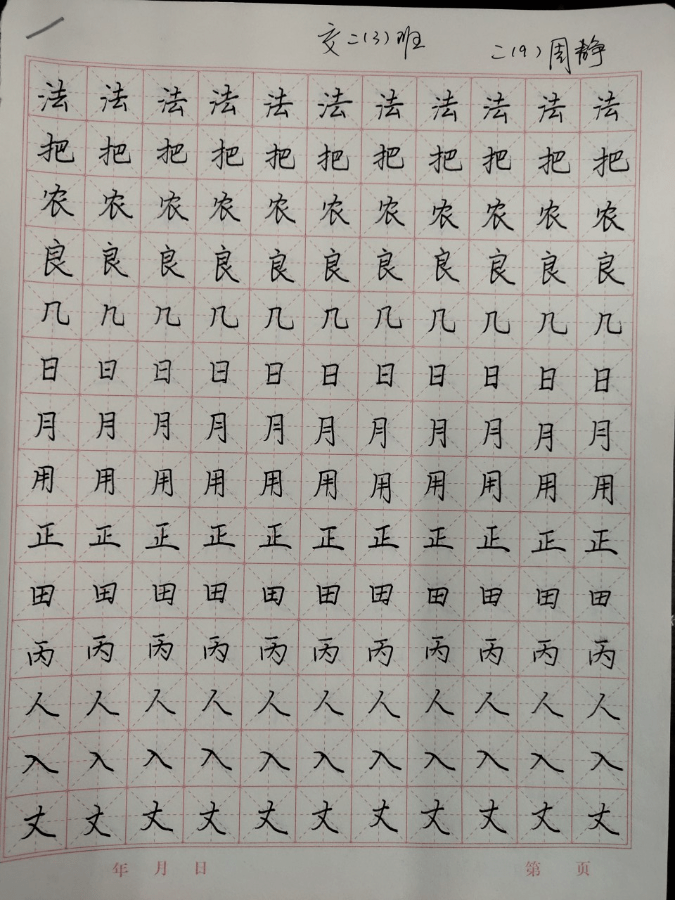 交二(3)班 二(9)周静
法法法法法法法法法法法
把把把把把把把把把把把
农农农农农农农农农农农
良良良良良良良良良良良
几几几几几几几几几几几
日日日日日日日日日日日
月月月月月月月月月月月
用用用用用用用用用用用
正正正正正正正正正正正
田田田田田田田田田田田
丙丙丙丙丙丙丙丙丙丙丙
人人人人人人人人人人人
入入入入入入入入入入入
丈丈丈丈丈丈丈丈丈丈丈
年 月 日 第 页